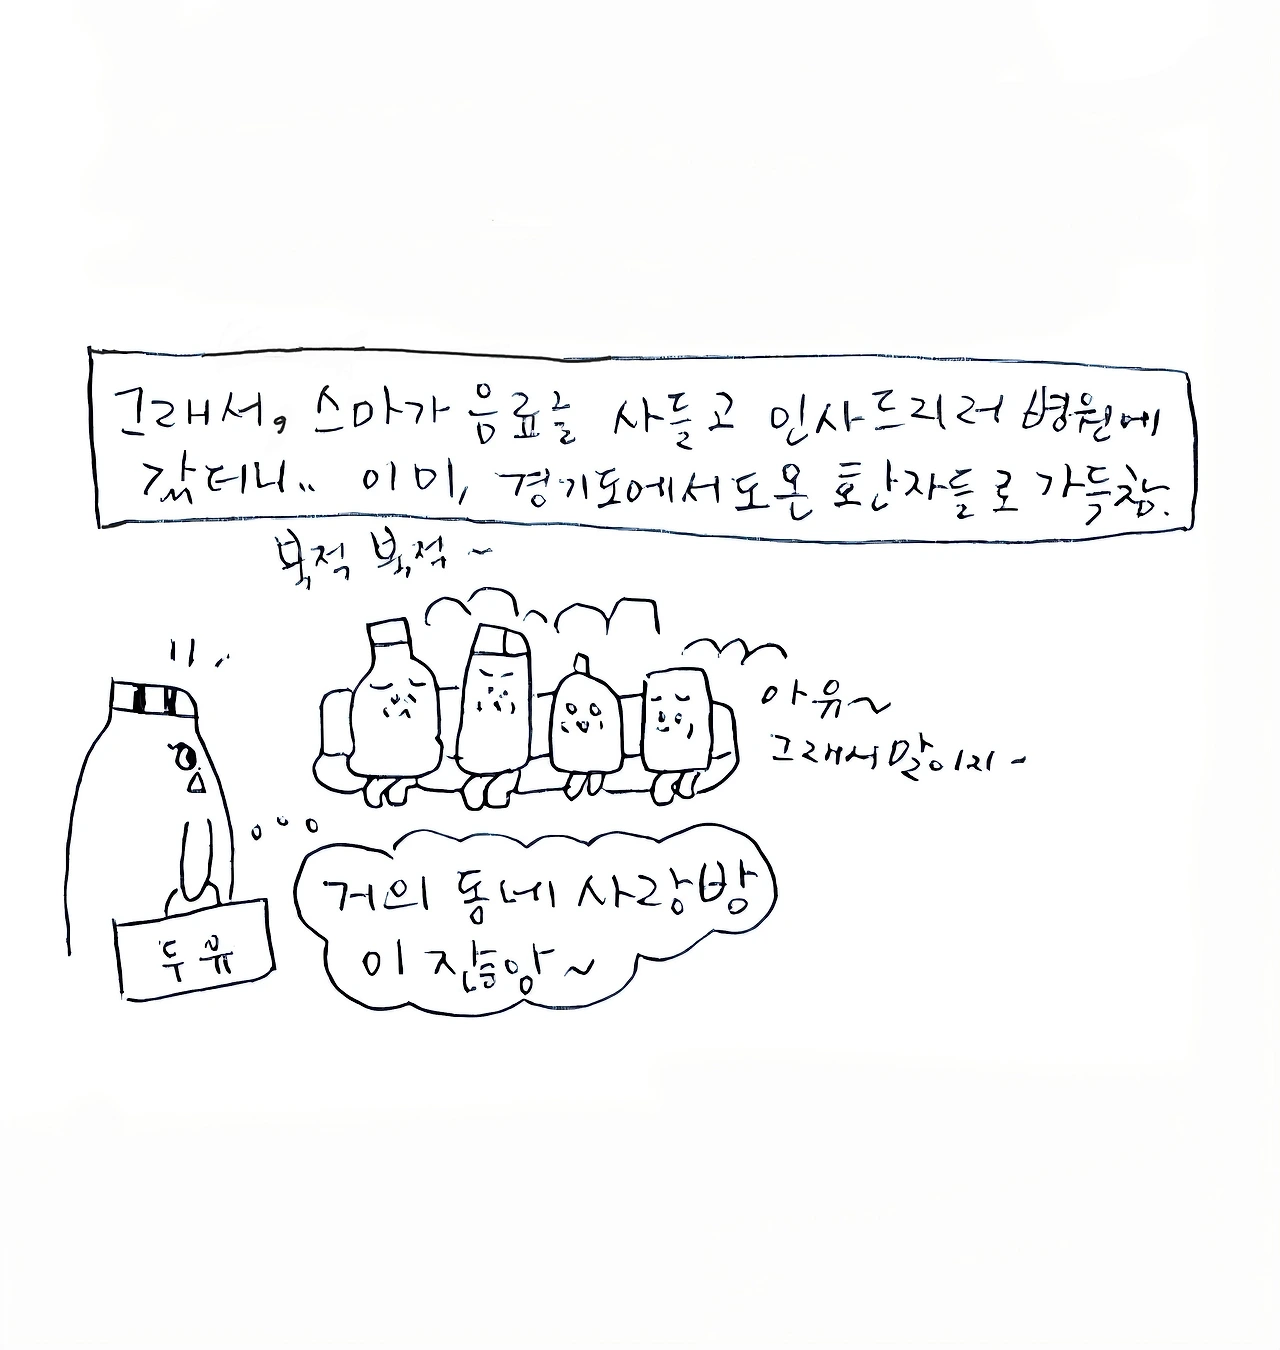 그래서, 스마가 음료를 사들고 인사드리러 병원에
갔더니.. 이미, 경기도에서도 온 환자들로 가득참.
북적 북적~
아유~
그래서 말이지~
거의 동네 사랑방
이잖앙~
두유